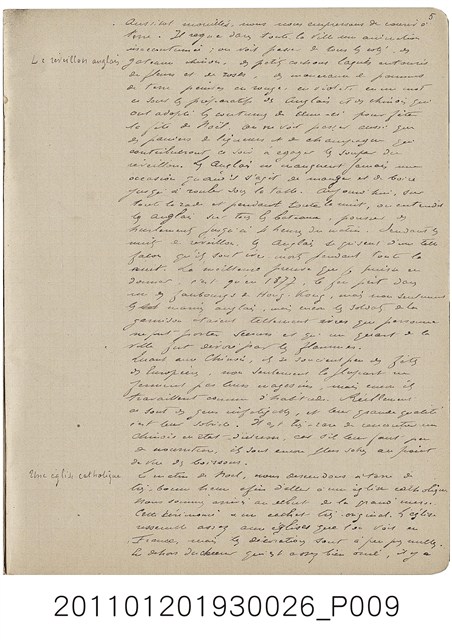 5
Aussitôt mouillés, nous nous empressons de courir à
terre. Il règne dans toute la ville une animation
inaccoutumée; on voit passer de tous les côtés, des
Le réveillon anglais
gateaux chinois, des petits cochons laqués entourés
de fleurs et de roses, des morceaux de pommes
de terre peintes en rouge, en violet, en un mot
ce sont les préparatifs des Anglais et des chinois qui
ont adopté les coutumes de ceux-ci pour fêter
la fête de Noël. On ne voit passer aussi que
des paniers de liqueurs et de champagne qui
contribueront ce soir à égayer les soupers du
réveillon. Les Anglais ne manquent jamais une
occasion quand il s'agit de manger et de boire
jusqu'à rouler sous la table. Aujourd'hui, sur
toute la rade et pendant toute la nuit, on entendit
les Anglais sur tous les bateaux, pousser des
hurlements jusqu'à heures du matin. Pendant les
nuits de réveillon, les Anglais se grisent d'une telle
façon qu'ils sont ivres morts pendant toute la
nuit. La meilleure preuve que je puisse en
donner, c'est qu'en 1877, le feu prit dans
un des faubourgs de Hong-Kong, mais non seulement
les marins anglais, mais encore les soldats de la
garnison étaient tellement ivres que personne
ne put porter secours et qu'un quart de la
ville fut dévoré par les flammes.
Quant aux Chinois, ils se soucient peu des fêtes
des Européens, non seulement la plupart ne
ferment pas leurs magasins, mais encore ils
travaillent comme d'habitude. Réellement
ce sont des gens infatigables, et leur grande qualité
est leur sobriété. Il est très rare de rencontrer un
Chinois en état d'ivresse, car s'il leur faut peu
de nourriture, ils sont encore plus sobres au point
de vue des boissons.
Une église catholique.
Le matin de Noël, nous descendons à terre de
très bonne heure afin d'aller à une église catholique.
Nous sommes arrivés au début de la grand'messe.
Cette cérémonie a un cachet très original. L'église
ressemble assez aux églises que l'on voit en
France, mais les décorations sont à peu près nulles.
Le dehors du chœur qui est assez bien orné, il y a
201101201930026_P009